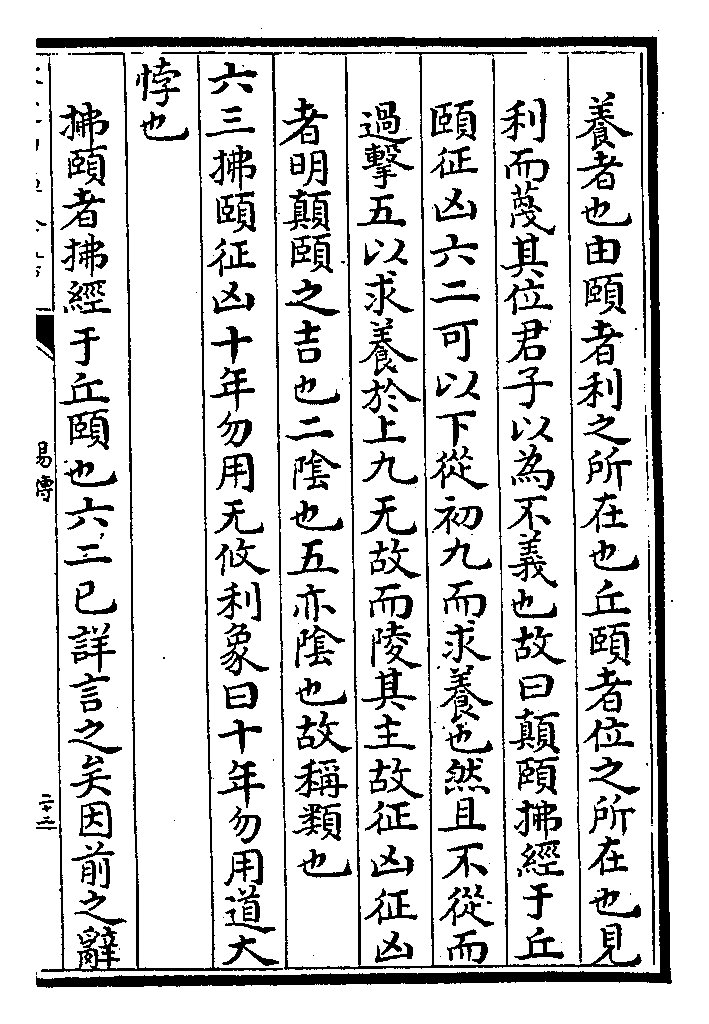 養者也由頤者利之所在也丘頤者位之所在也見
利而蔑其位君子以為不義也故曰顛頤拂經于丘
頤征凶六二可以下從初九而求養也然且不從而
過擊五以求養於上九无故而陵其主故征凶征凶
者明顛頤之吉也二陰也五亦陰也故稱類也
六三拂頤征凶十年勿用无攸利象曰十年勿用道大
悖也
拂頤者拂經于丘頤也六二已詳言之矣因前之辭
易傳
二十二